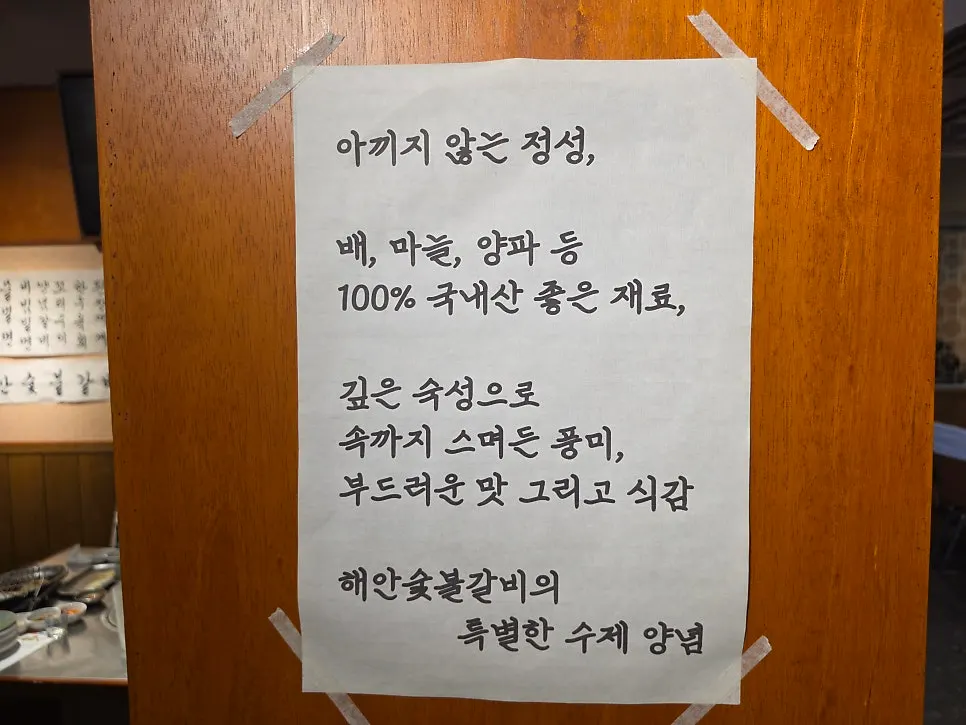 아끼지 않는 정성,
배, 마늘, 양파 등
100% 국내산 좋은 재료,
깊은 숙성으로
속까지 스며든 풍미,
부드러운 맛 그리고 식감
해안숯불갈비의
특별한 수제 양념
안숯불갈비